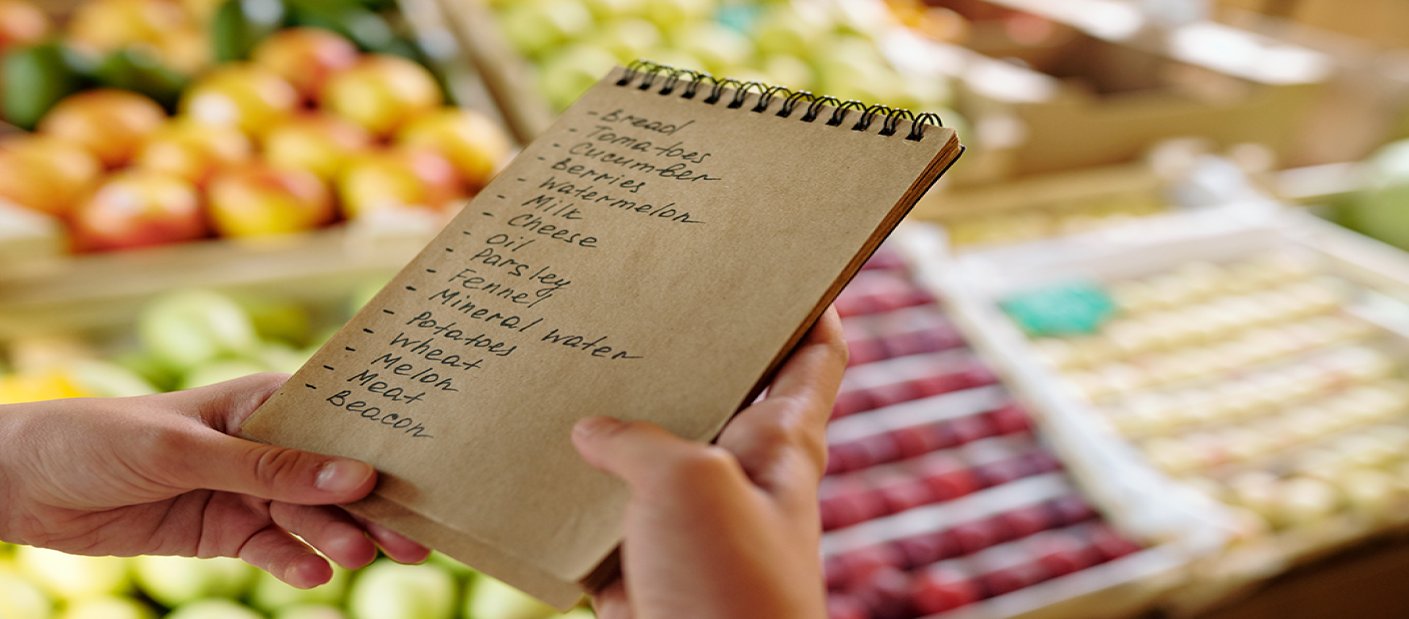 - bread
- Tomatoes
- Cucumber
- Berries
- Watermelon
- Milk
- Cheese
- Oil
- Parsley
- Fennel
- Mineral water
- Potatoes
- Wheat
- Melon
- Meat
- Beacon